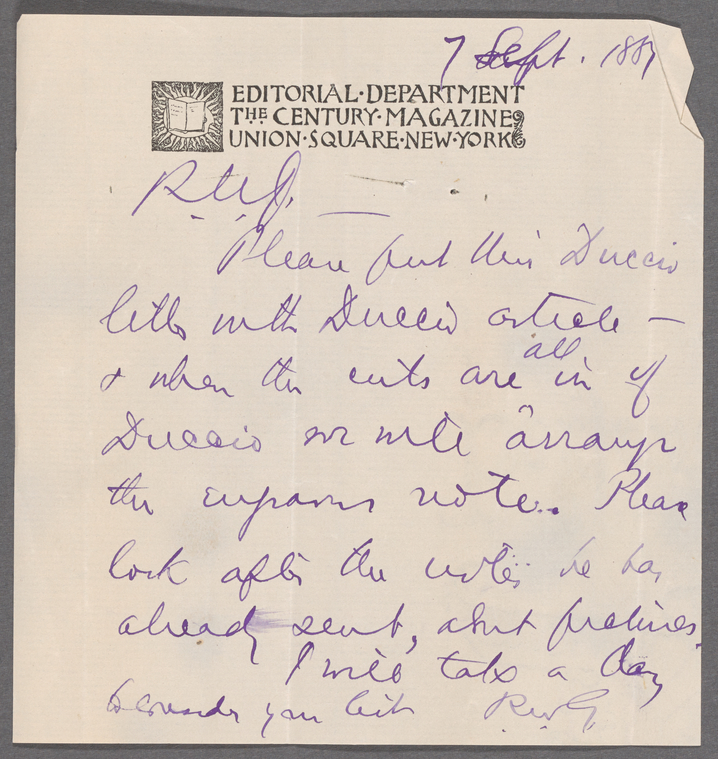 7 Sept. 1887
EDITORIAL·DEPARTMENT
THE CENTURY·MAGAZINE
UNION·SQUARE·NEW·YORK
R. U. J.
Please put this Duccio
letter with Duccio article —
& when the cuts are all in of
Duccio we will arrange
the engravers note.. Please
look after the notes he has
already sent, about pictures.
I will take a day
to consider your list R.W.G.